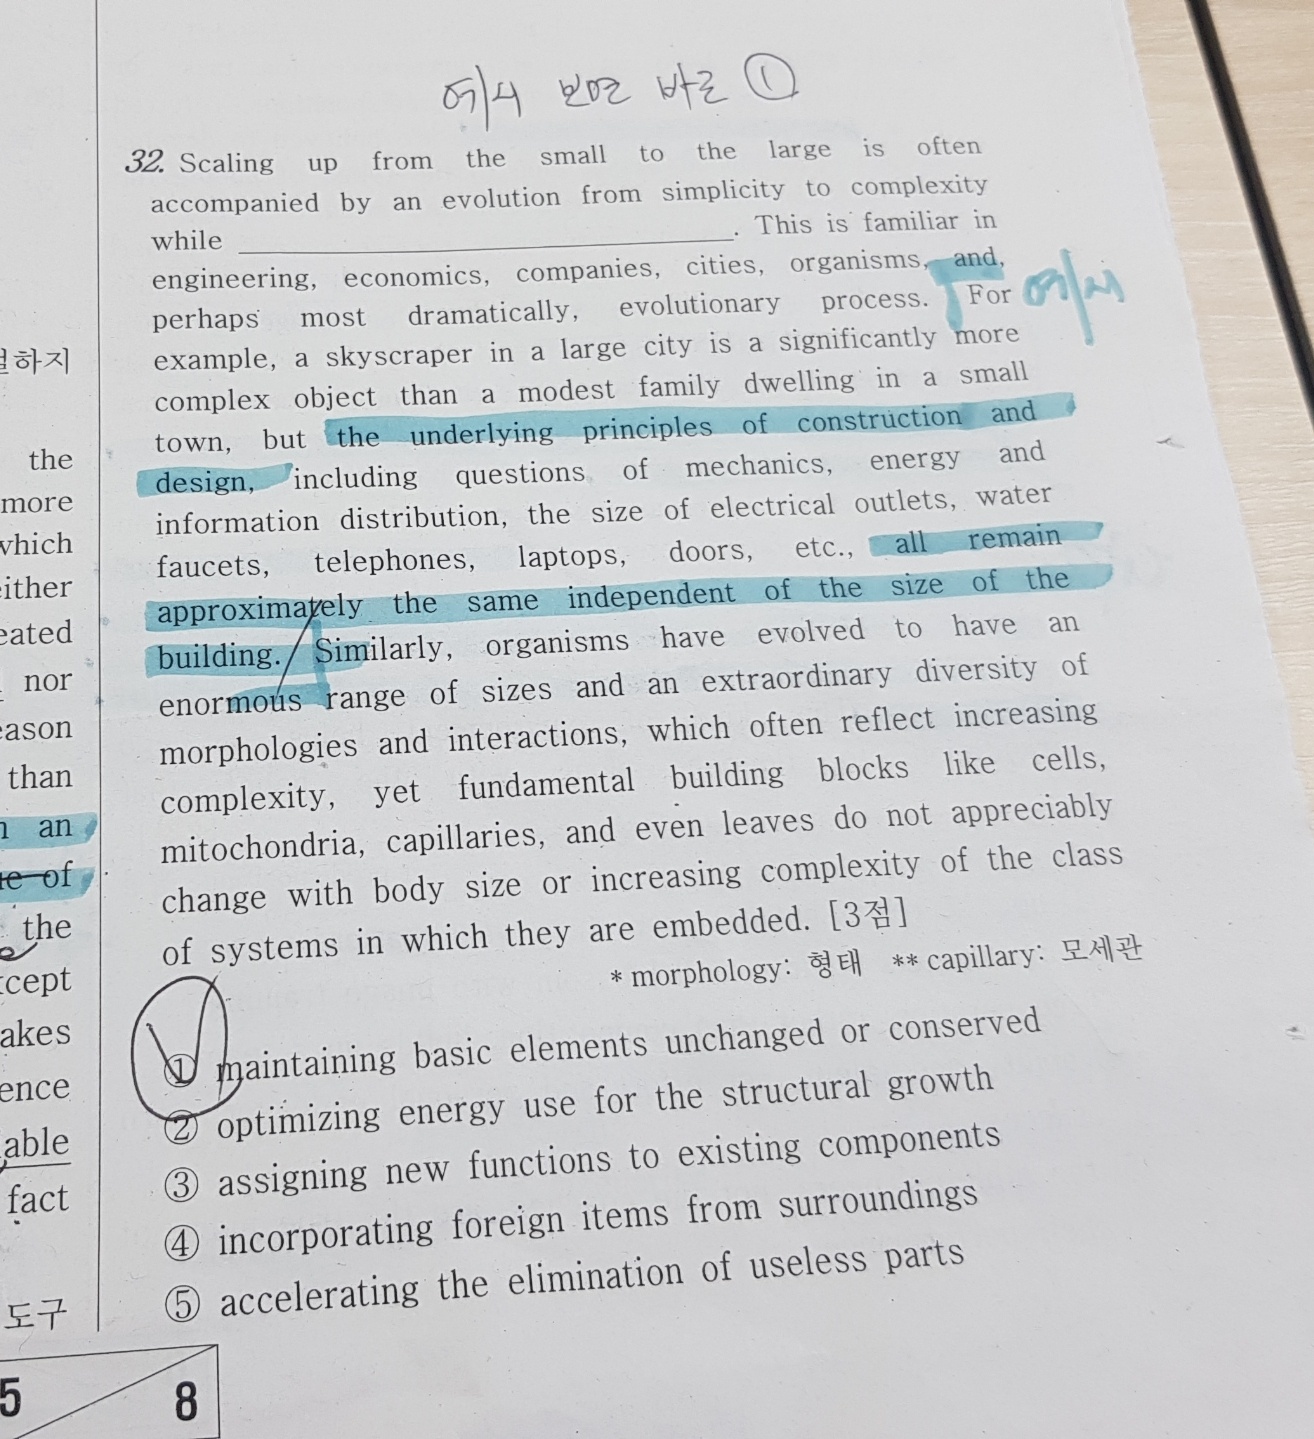 예시 보면 바로 ①
32. Scaling up from the small to the large is often
accompanied by an evolution from simplicity to complexity
while ____________________. This is familiar in
engineering, economics, companies, cities, organisms, and,
perhaps most dramatically, evolutionary process. For
예시
example, a skyscraper in a large city is a significantly more
complex object than a modest family dwelling in a small
town, but the underlying principles of construction and
design, including questions of mechanics, energy and
information distribution, the size of electrical outlets, water
faucets, telephones, laptops, doors, etc., all remain
approximately the same independent of the size of the
building. Similarly, organisms have evolved to have an
enormous range of sizes and an extraordinary diversity of
morphologies and interactions, which often reflect increasing
complexity, yet fundamental building blocks like cells,
mitochondria, capillaries, and even leaves do not appreciably
change with body size or increasing complexity of the class
of systems in which they are embedded. [3점]
* morphology: 형태 ** capillary: 모세관
① maintaining basic elements unchanged or conserved
② optimizing energy use for the structural growth
③ assigning new functions to existing components
④ incorporating foreign items from surroundings
⑤ accelerating the elimination of useless parts
하지
the
more
which
either
eated
nor
eason
than
an
of
the
cept
akes
ence
able
fact
도구
5
8